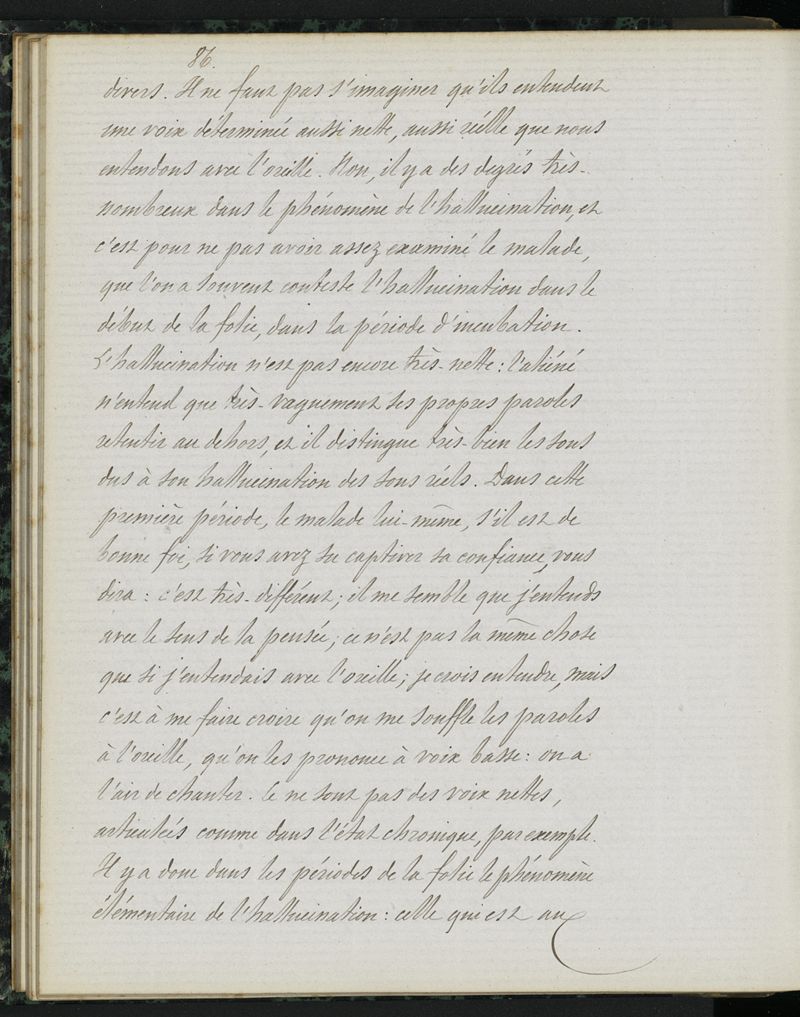 86.
divers. Il ne faut pas s'imaginer qu'ils entendent
une voix déterminée aussi nette, aussi réelle que nous
entendons avec l'oreille. Non, il y a des degrés très-
nombreux dans le phénomène de l'hallucination, et
c'est pour ne pas avoir assez examiné le malade,
que l'on a souvent contesté l'hallucination dans le
début de la folie, dans la période d'incubation.
L'hallucination n'est pas encore très-nette : l'aliéné
n'entend que très-vaguement ses propres paroles
retentir au dehors, et il distingue très-bien les sons
dus à son hallucination des sons réels. Dans cette
première période, le malade lui-même, s'il est de
bonne foi, si vous avez su captiver sa confiance, vous
dira : c'est très-différent ; il me semble que j'entends
avec le sens de la pensée ; ce n'est pas la même chose
que si j'entendais avec l'oreille ; je crois entendre, mais
c'est à me faire croire qu'on me souffle les paroles
à l'oreille, qu'on les prononce à voix basse : on a
l'air de chanter. Ce ne sont pas des voix nettes,
articulées comme dans l'état chronique, par exemple.
Il y a donc dans les périodes de la folie le phénomène
élémentaire de l'hallucination : celle qui est au